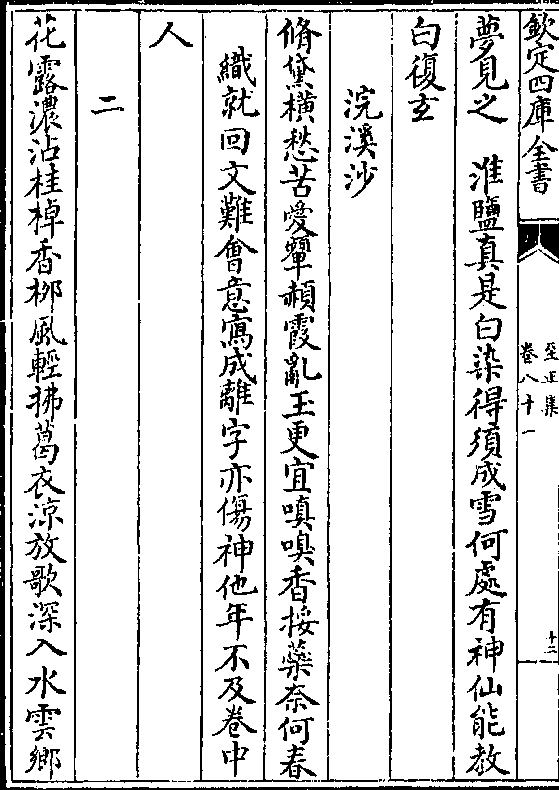 欽定四庫全書
至正集
卷八十一
十二
夢見之　淮鹽真是白染得須成雪何處有神仙能教
白復玄
浣溪沙
脩黛橫愁苦愛顰頳霞亂玉更宜嗔嗅香挼藥奈何春
織就回文難會意寫成離字亦傷神他年不及卷中
人
二
花露濃沾桂棹香栁風輕拂葛衣涼放歌深入水雲鄉